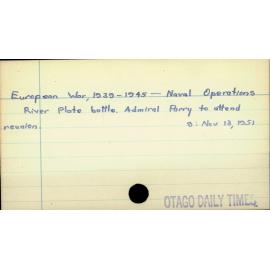 European War, 1939-1945 — Naval Operations
River Plate battle. Admiral Parry to attend
reunion. 8: Nov 13, 1951
OTAGO DAILY TIMES